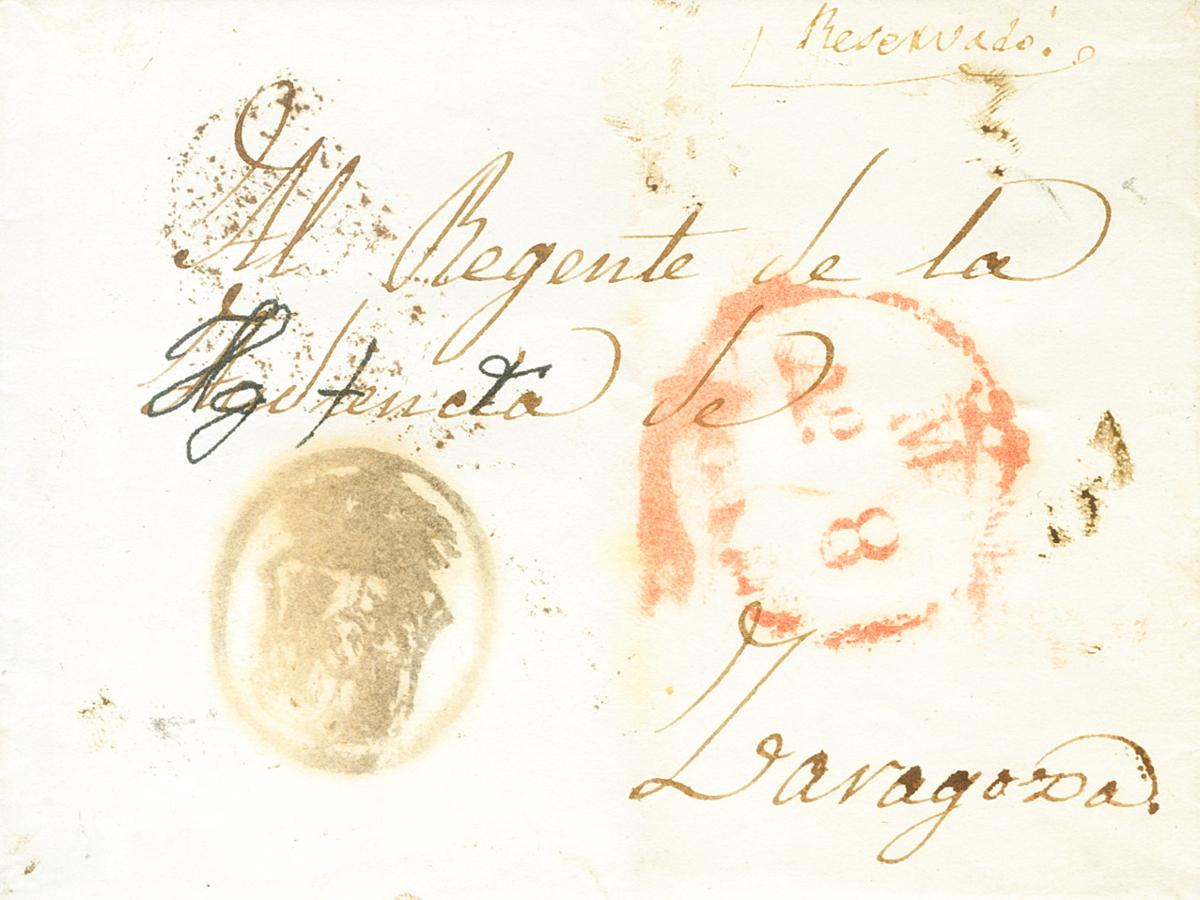 Reservado!
Al Regente de la
de
Zaragoza.
8